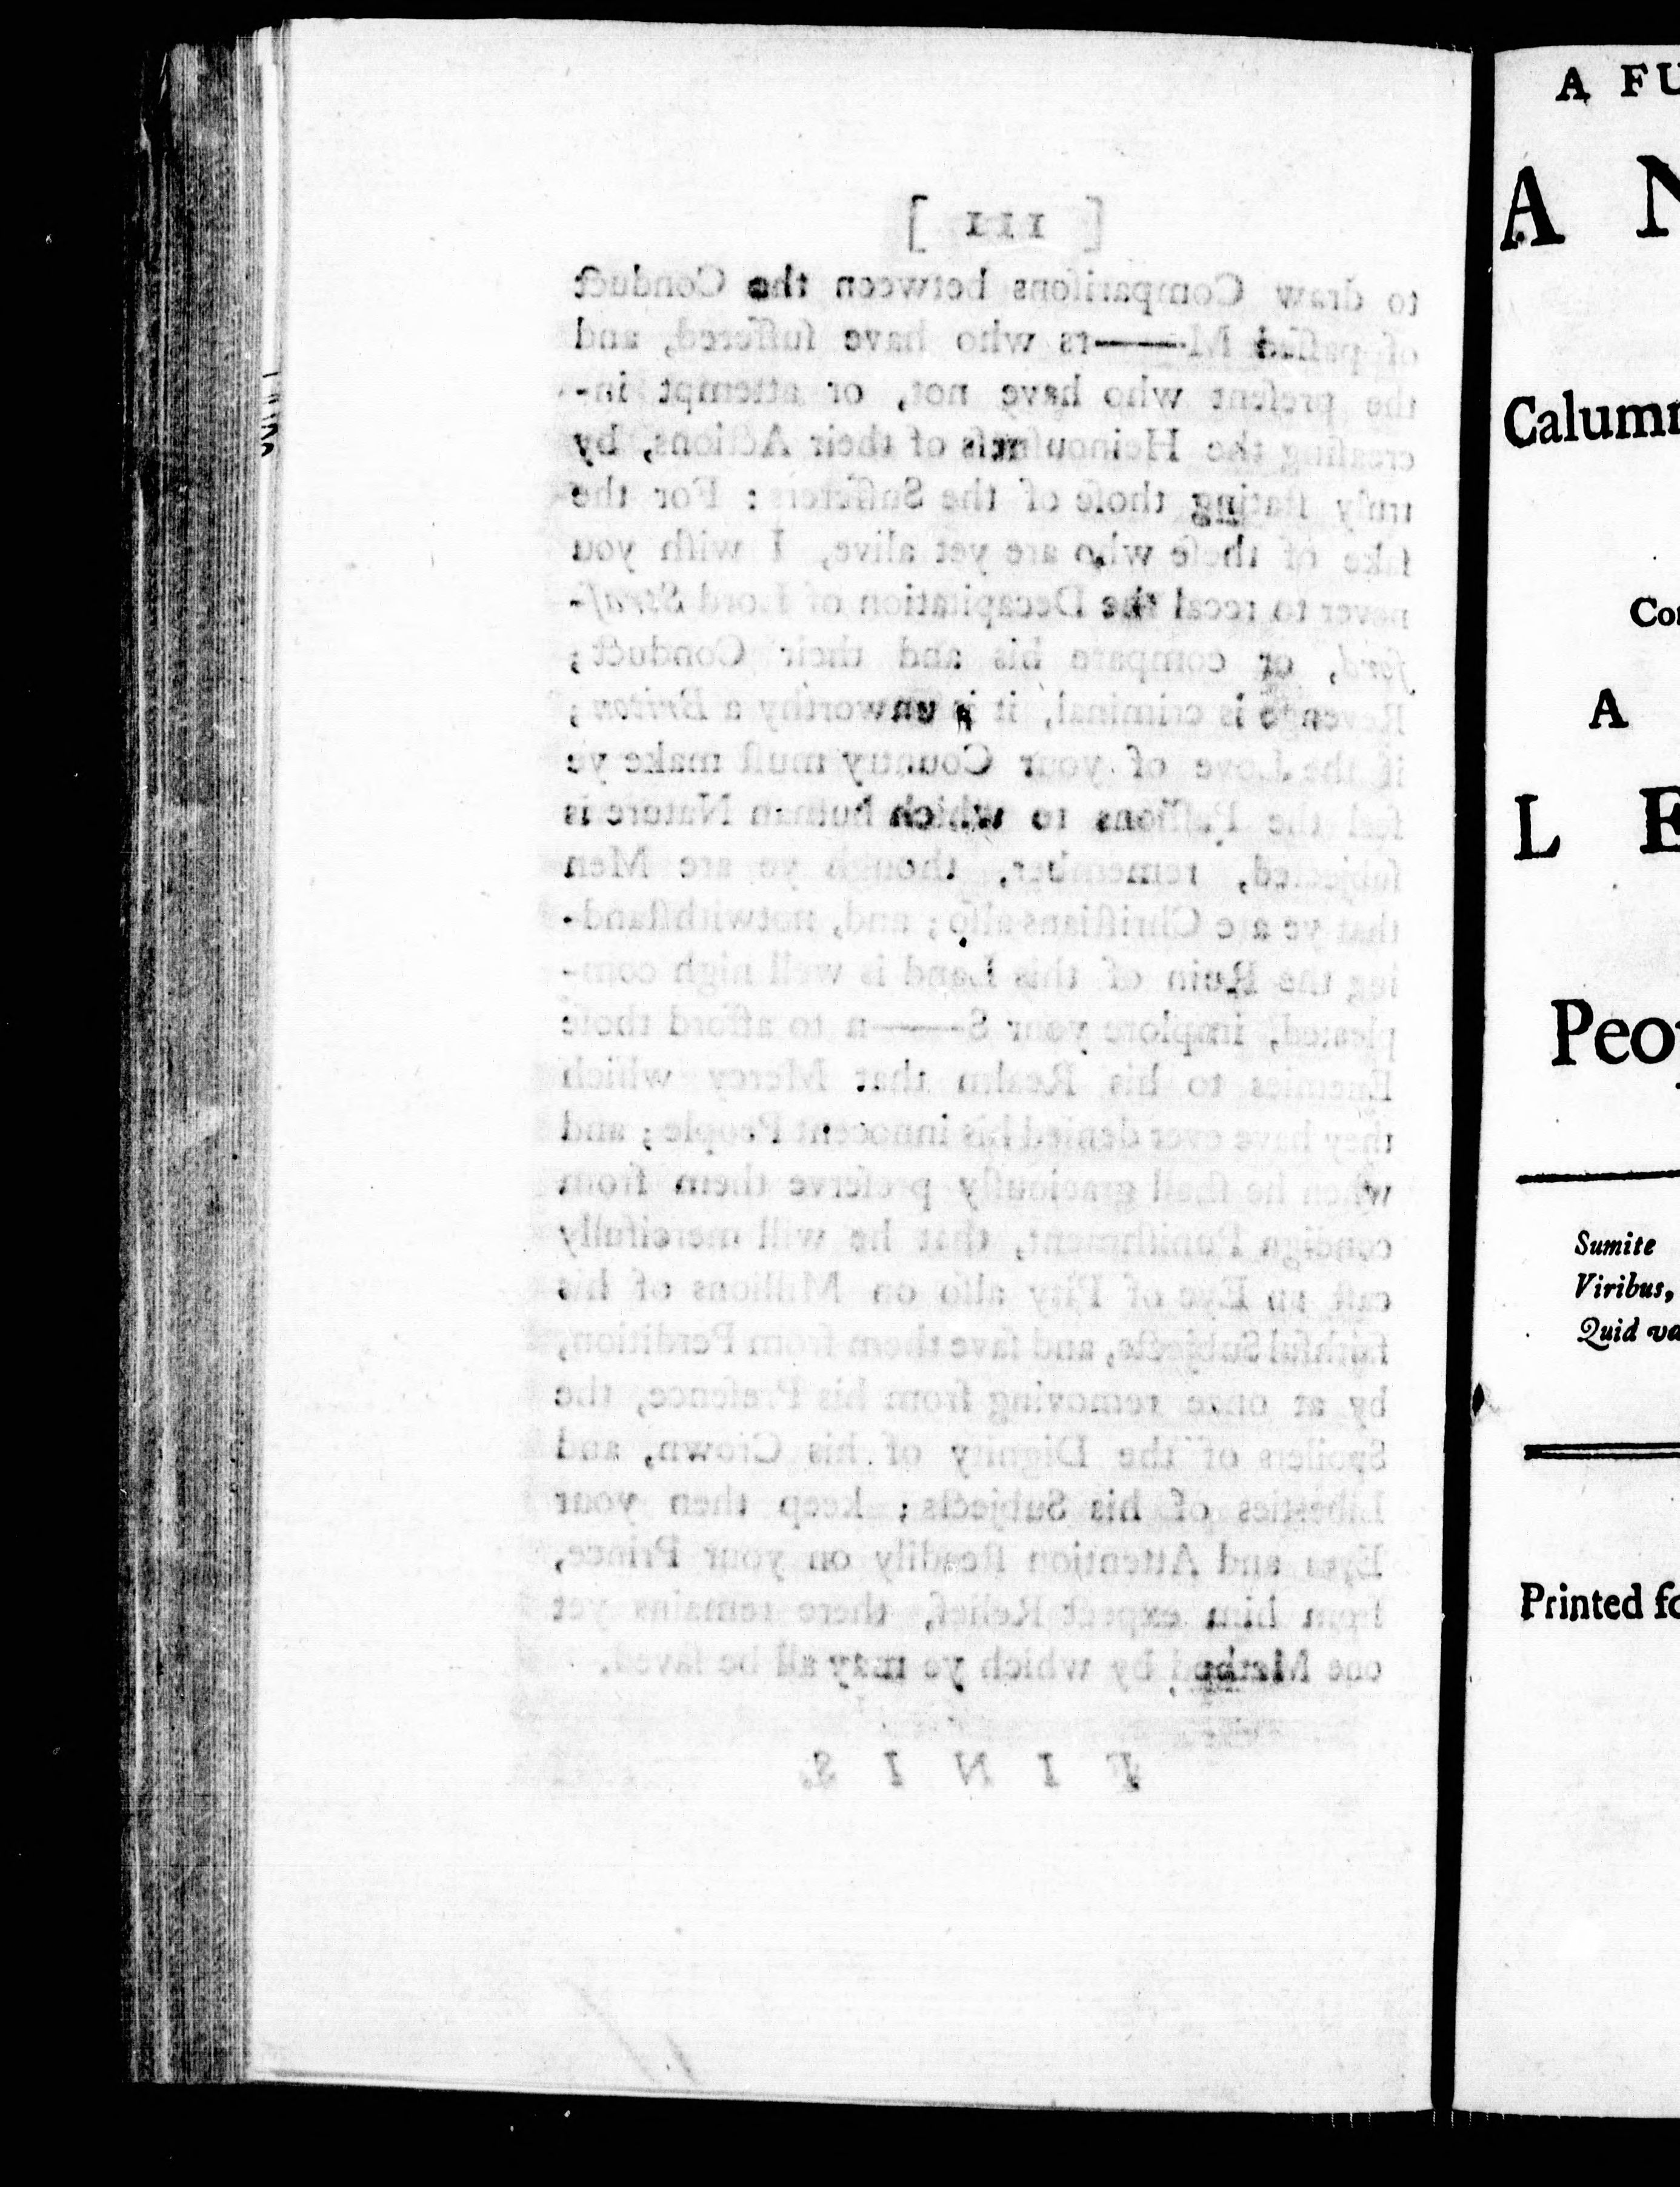 [ 111 ]
to draw Compariſons between the Conduct
of paſſed M——rs who have ſuffered, and
the preſent who have not, or attempt in-
creaſing the Heinouſneſs of their Actions, by
truly ſtating thoſe of the Sufferers: For the
ſake of theſe who are yet alive, I wiſh you
never to recal the Decapitation of Lord Straf-
ford, or compare his and their Conduct;
Revenge is criminal, it is unworthy a Briton;
if the Love of your Country muſt make ye
feel the Paſſions to which human Nature is
ſubjected, remember, though ye are Men
that ye are Chriſtians alſo; and, notwithſtand-
ing the Ruin of this Land is well nigh com-
pleated, implore your S——n to afford thoſe
Enemies to his Realm that Mercy which
they have ever denied his innocent People; and
when he ſhall graciouſly preſerve them from
condign Puniſhment, that he will mercifully
caſt an Eye of Pity alſo on Millions of his
faithful Subjects, and ſave them from Perdition,
by at once removing from his Preſence, the
Spoilers of the Dignity of his Crown, and
Liberties of his Subjects; keep then your
Eyes and Attention ſteadily on your Prince,
from him expect Relief, there remains yet
one Method by which ye may all be ſaved.
F I N I S.
A FU
A N
Calumn
Con
A
L E
Peop
Sumite
Viribus,
Quid va
Printed fo